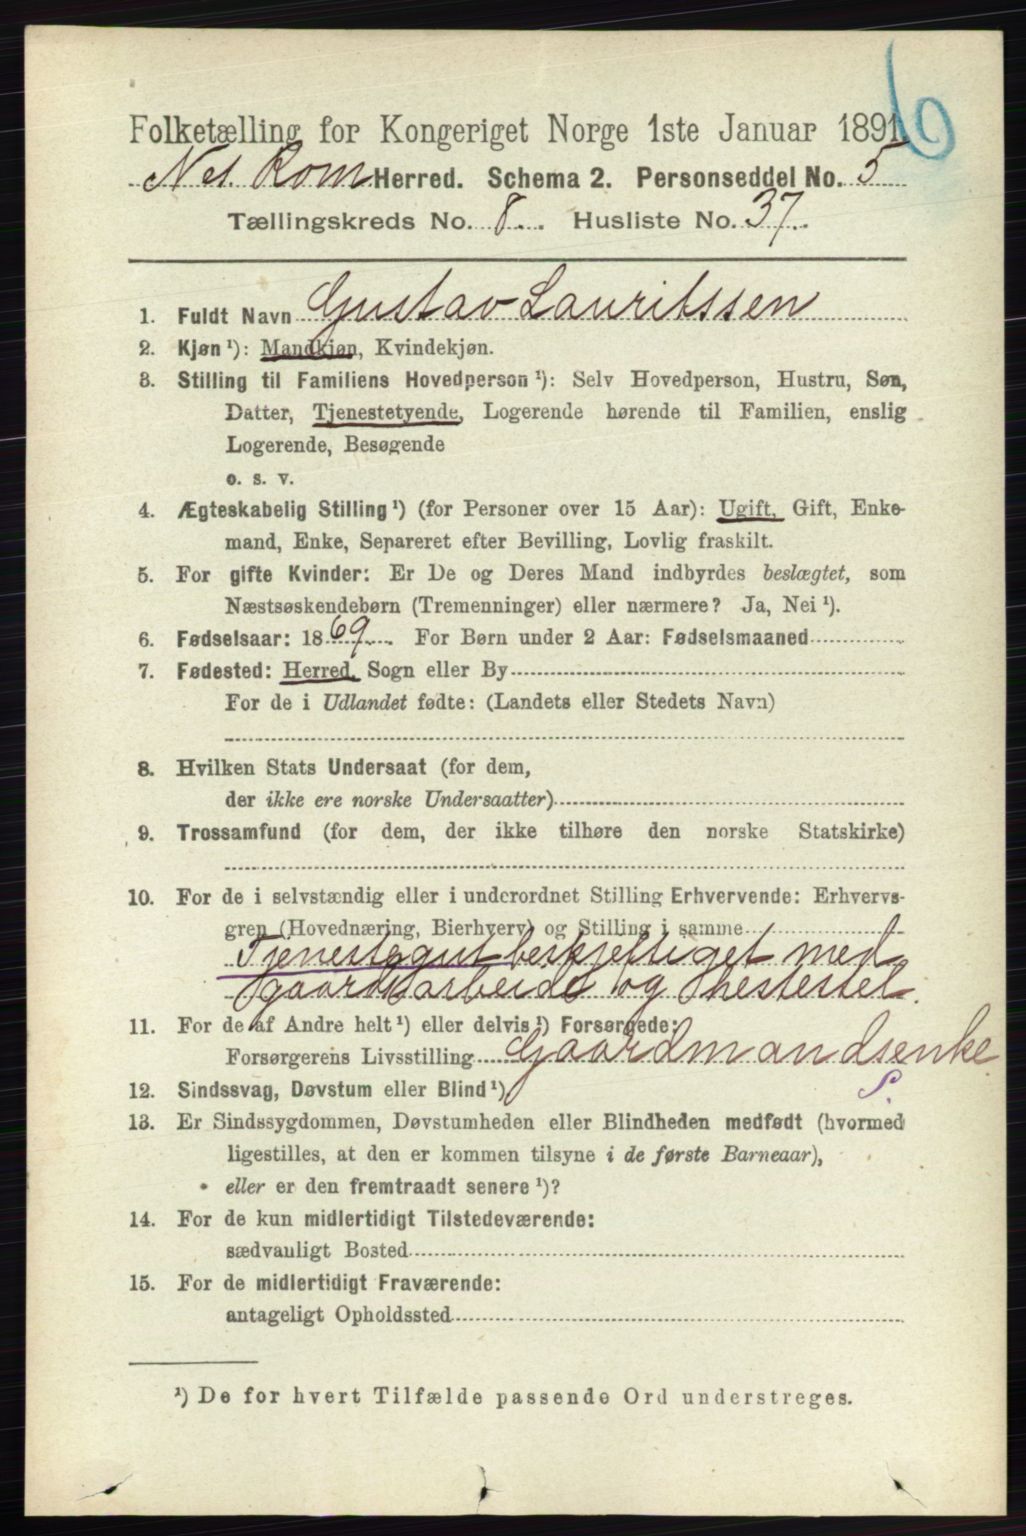 6
Folketælling for Kongeriget Norge 1ste Januar 1891.
Nes. Rom Herred. Schema 2. Personseddel No. 5
Tællingskreds No. 8. Husliste No. 37.
1. Fuldt Navn Gustav Lauritssen
2. Kjøn ¹): Mandkjøn, Kvindekjøn.
3. Stilling til Familiens Hovedperson ¹): Selv Hovedperson, Hustru, Søn,
Datter, Tjenestetyende, Logerende hørende til Familien, enslig
Logerende, Besøgende
o. s. v.
4. Ægteskabelig Stilling ¹) (for Personer over 15 Aar): Ugift, Gift, Enke-
mand, Enke, Separeret efter Bevilling, Lovlig fraskilt.
5. For gifte Kvinder: Er De og Deres Mand indbyrdes beslægtet, som
Næstsøskendebørn (Tremenninger) eller nærmere? Ja, Nei ¹).
6. Fødselsaar: 1869. For Børn under 2 Aar: Fødselsmaaned
7. Fødested: Herred, Sogn eller By
For de i Udlandet fødte: (Landets eller Stedets Navn)
8. Hvilken Stats Undersaat (for dem,
der ikke ere norske Undersaatter)
9. Trossamfund (for dem, der ikke tilhøre den norske Statskirke)
10. For de i selvstændig eller i underordnet Stilling Erhvervende: Erhvervs-
gren (Hovednæring, Bierhverv) og Stilling i samme
Tjenestegut beskjeftiget med
gaardsarbeide og hestestel.
11. For de af Andre helt ¹) eller delvis ¹) Forsørgede:
Forsørgerens Livsstilling Gaardmandsenke.
12. Sindssvag, Døvstum eller Blind ¹) S.
13. Er Sindssygdommen, Døvstumheden eller Blindheden medfødt (hvormed
ligestilles, at den er kommen tilsyne i de første Barneaar),
eller er den fremtraadt senere ¹)?
14. For de kun midlertidigt Tilstedeværende:
sædvanligt Bosted
15. For de midlertidigt Fraværende:
antageligt Opholdssted
¹) De for hvert Tilfælde passende Ord understreges.